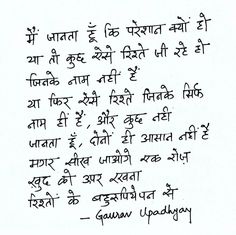 मैं जानता हूँ कि परेशान क्यों हो
या तो कुछ ऐसे रिश्ते जी रहे हो
जिनके नाम नहीं हैं
या फिर ऐसे रिश्ते जिनके सिर्फ
नाम ही हैं, और कुछ नहीं
जानता हूँ, दोनों ही आसान नहीं हैं
मगर सीख जाओगे एक रोज़
खुद को अपर रखना
रिश्तों के बहुरूपियेपन से
— Gaurav Upadhyay